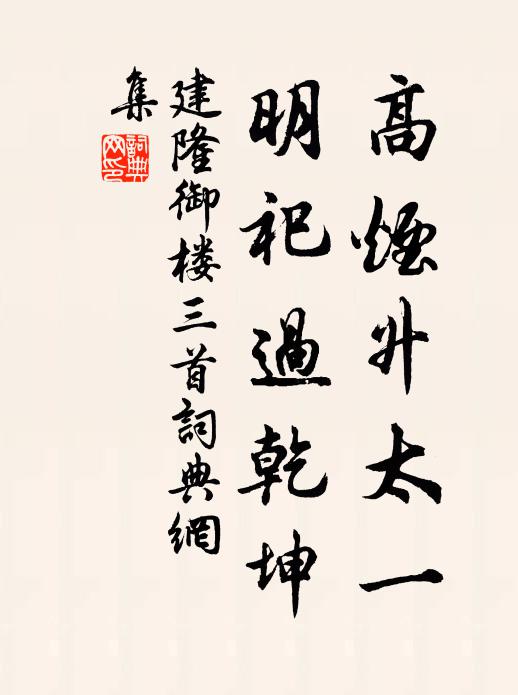 高煙升太一
明祀過乾坤
建隆御楼三首詞典網
集
詞典網印